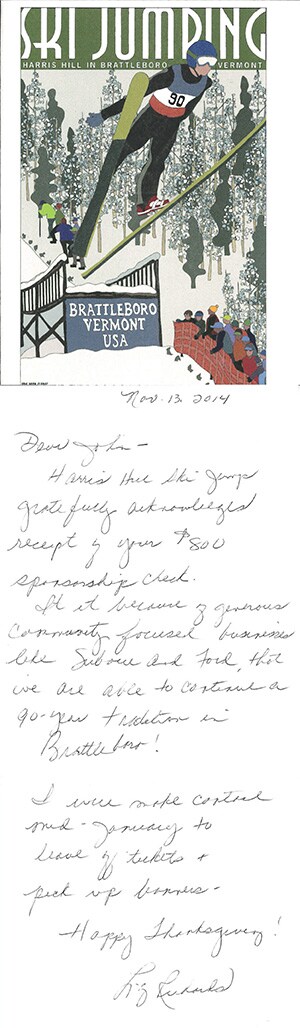 SKI JUMPING
HARRIS HILL IN BRATTLEBORO VERMONT
90
BRATTLEBORO
VERMONT
USA
Nov. 13. 2014
Dear John -
Harris Hill Ski Jump
gratefully acknowledges
receipt of your $800
sponsorship check.
It it because of generous
community focused businesses
like Subaru and Ford, that
we are able to continue a
90-year tradition in
Brattleboro!
I will make contact
mid - January to
leave off tickets +
pick up banners -
Happy Thanksgiving!
Liz Richards